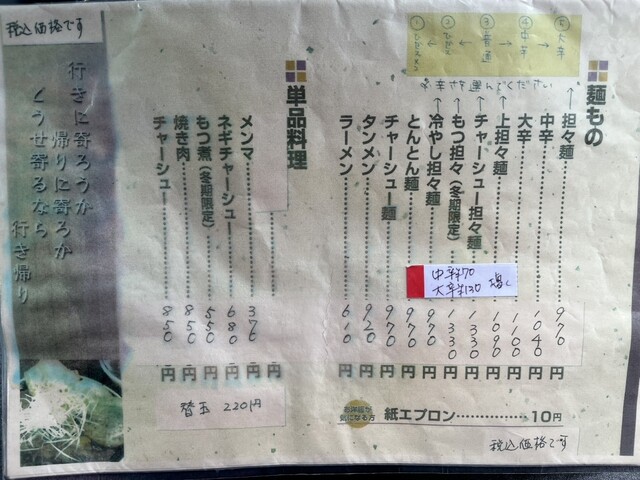 麺もの
担々麺 970円
中辛 1040円
大辛 1100円
上担々麺 1090円
チャーシュー担々麺 1330円
もつ担々(冬期限定) 1330円
冷やし担々麺 970円
とんとん麺 970円
チャーシュー麺 970円
タンメン 920円
ラーメン 610円
⑤ 大辛
④ 中辛
③ 普通
②
①
中辛¥70
大辛¥130
お洋服が
気になる方
紙エプロン……………10円
税込価格です
単品料理
円
メンマ 370円
ネギチャーシュー 680円
もつ煮(冬期限定) 550円
焼き肉 850円
チャーシュー 850円
替玉 220円
税込価格です
行きに寄ろうか
帰りに寄ろか
どうせ寄るなら
行き帰り